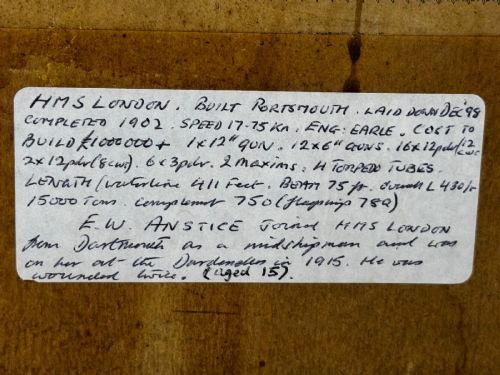 HMS LONDON. BUILT PORTSMOUTH. LAID DOWN DEC '98
COMPLETED 1902. SPEED 17-75 Kn. ENG: EARLE. COST TO
BUILD £1000000+ 1x12" GUN. 12x6" GUNS. 16x12pdr (12 cwt
2x12pdr (8cwt). 6x3pdr. 2 Maxims. 4 TORPEDO TUBES.
LENGTH/waterline 411 Feet. BEAM 75 ft. Overall L 430 ft
15000 Tons. Complement 750 (flagship 789)
E.W. ANSTICE Joined HMS LONDON
from Dartmouth as a midshipman and was
on her at the Dardenelles in 1915. He was
wounded twice. (aged 15).